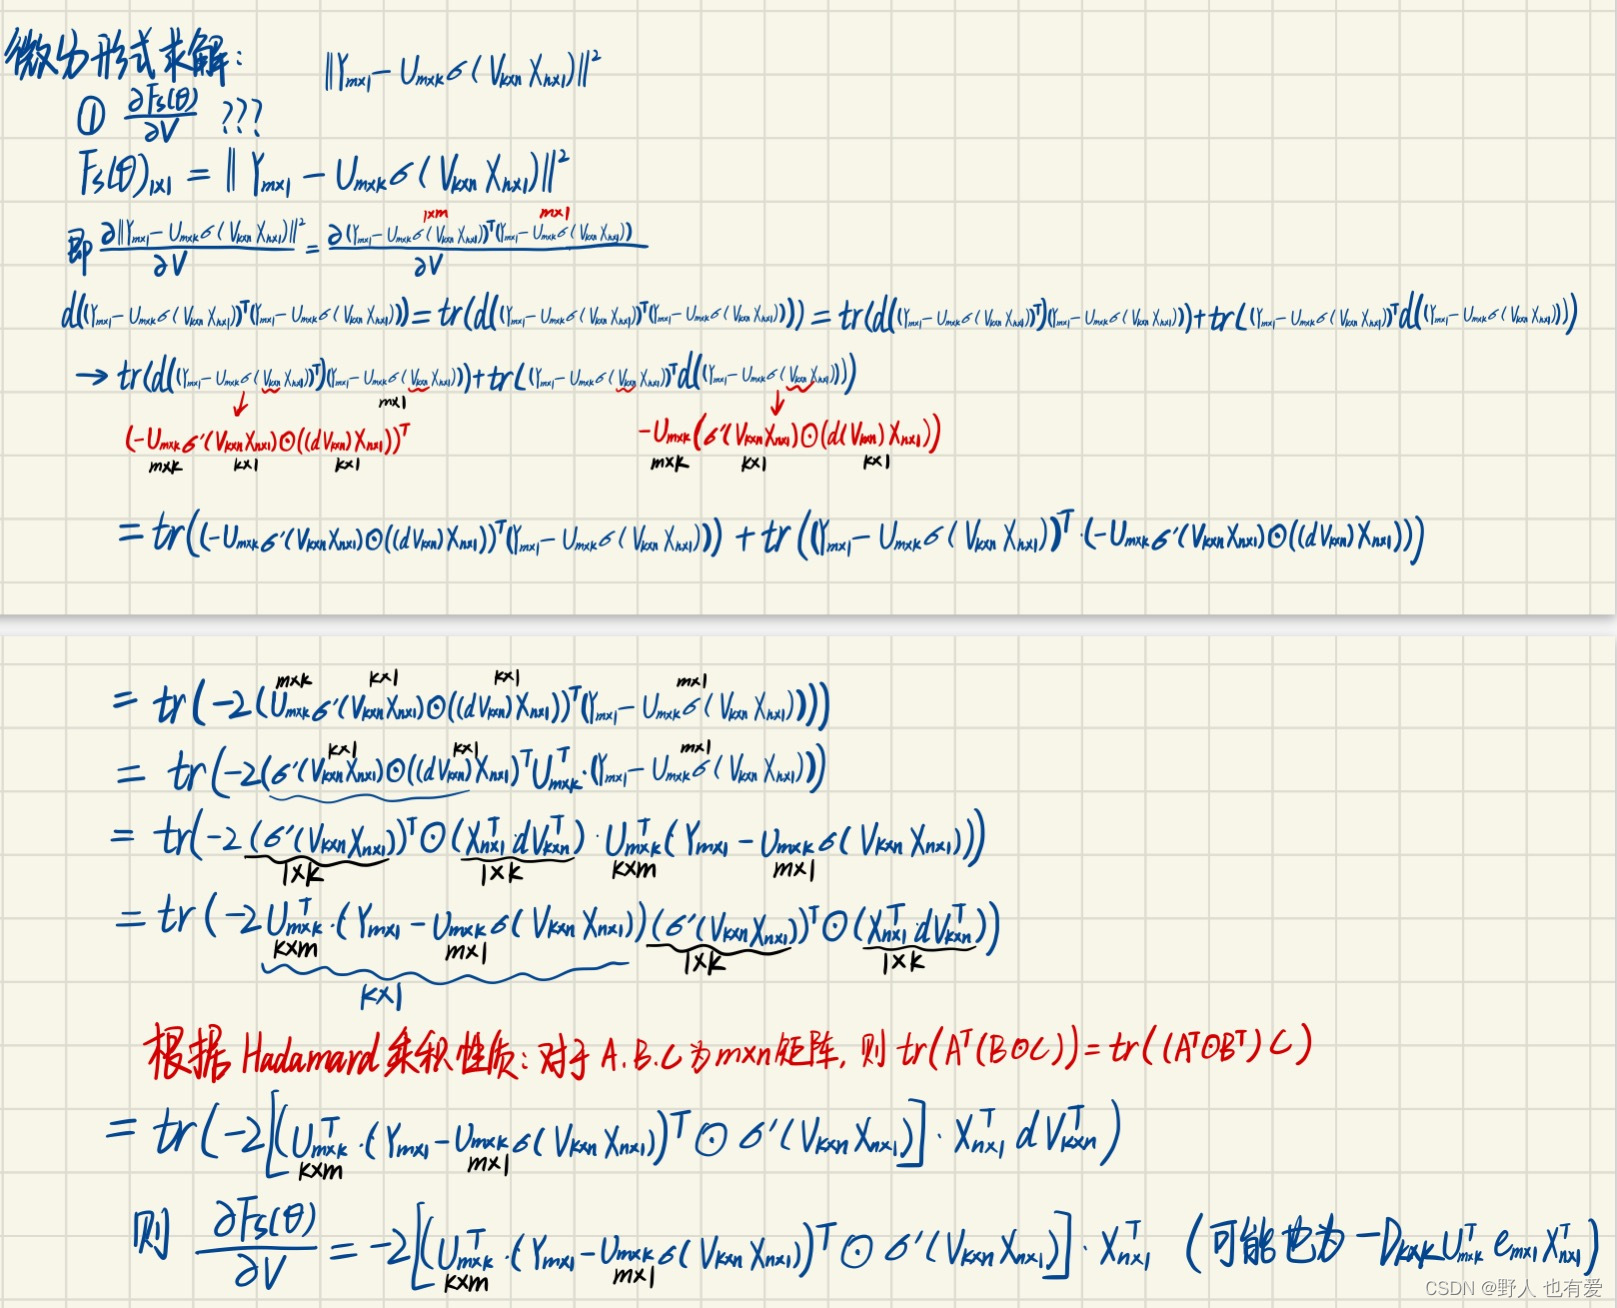 微分形式求解: ‖Y_{m×1} - U_{m×k}σ(V_{k×n}X_{n×1})‖²
① ∂Fs(θ)/∂V ???
Fs(θ)_{1×1} = ‖Y_{m×1} - U_{m×k}σ(V_{k×n}X_{n×1})‖²
1×m m×1
即 ∂‖Y_{m×1} - U_{m×k}σ(V_{k×n}X_{n×1})‖²/∂V = ∂(Y_{m×1} - U_{m×k}σ(V_{k×n}X_{n×1}))ᵀ(Y_{m×1} - U_{m×k}σ(V_{k×n}X_{n×1}))/∂V
d((Y_{m×1} - U_{m×k}σ(V_{k×n}X_{n×1}))ᵀ(Y_{m×1} - U_{m×k}σ(V_{k×n}X_{n×1}))) = tr(d((Y_{m×1} - U_{m×k}σ(V_{k×n}X_{n×1}))ᵀ(Y_{m×1} - U_{m×k}σ(V_{k×n}X_{n×1})))) = tr(d((Y_{m×1} - U_{m×k}σ(V_{k×n}X_{n×1}))ᵀ)(Y_{m×1} - U_{m×k}σ(V_{k×n}X_{n×1}))) + tr((Y_{m×1} - U_{m×k}σ(V_{k×n}X_{n×1}))ᵀd((Y_{m×1} - U_{m×k}σ(V_{k×n}X_{n×1}))))
→ tr(d((Y_{m×1} - U_{m×k}σ(V_{k×n}X_{n×1}))ᵀ)(Y_{m×1} - U_{m×k}σ(V_{k×n}X_{n×1}))) + tr((Y_{m×1} - U_{m×k}σ(V_{k×n}X_{n×1}))ᵀd((Y_{m×1} - U_{m×k}σ(V_{k×n}X_{n×1}))))
↓ m×1 ↓
(-U_{m×k}σ'(V_{k×n}X_{n×1})⊙((dV_{k×n})X_{n×1}))ᵀ -U_{m×k}(σ'(V_{k×n}X_{n×1})⊙(d(V_{k×n})X_{n×1}))
m×k k×1 k×1 m×k k×1 k×1
= tr((-U_{m×k}σ'(V_{k×n}X_{n×1})⊙((dV_{k×n})X_{n×1}))ᵀ(Y_{m×1} - U_{m×k}σ(V_{k×n}X_{n×1}))) + tr((Y_{m×1} - U_{m×k}σ(V_{k×n}X_{n×1}))ᵀ·(-U_{m×k}σ'(V_{k×n}X_{n×1})⊙((dV_{k×n})X_{n×1})))
m×k k×1 k×1 m×1
= tr(-2(U_{m×k}σ'(V_{k×n}X_{n×1})⊙((dV_{k×n})X_{n×1}))ᵀ(Y_{m×1} - U_{m×k}σ(V_{k×n}X_{n×1})))
k×1 k×1 m×1
= tr(-2(σ'(V_{k×n}X_{n×1})⊙((dV_{k×n})X_{n×1})ᵀUᵀ_{m×k}·(Y_{m×1} - U_{m×k}σ(V_{k×n}X_{n×1})))
= tr(-2(σ'(V_{k×n}X_{n×1}))ᵀ⊙(Xᵀ_{n×1}dVᵀ_{k×n})·Uᵀ_{m×k}(Y_{m×1} - U_{m×k}σ(V_{k×n}X_{n×1})))
1×k 1×k k×m m×1
= tr(-2Uᵀ_{m×k}·(Y_{m×1} - U_{m×k}σ(V_{k×n}X_{n×1}))(σ'(V_{k×n}X_{n×1}))ᵀ⊙(Xᵀ_{n×1}dVᵀ_{k×n}))
k×m m×1 1×k 1×k
k×1
根据Hadamard乘积性质:对于A.B.C为m×n矩阵,则tr(Aᵀ(B⊙C))=tr((Aᵀ⊙Bᵀ)C)
= tr(-2[(Uᵀ_{m×k}·(Y_{m×1} - U_{m×k}σ(V_{k×n}X_{n×1}))ᵀ⊙σ'(V_{k×n}X_{n×1})]·Xᵀ_{n×1}dVᵀ_{k×n})
k×m m×1
则 ∂Fs(θ)/∂V = -2[(Uᵀ_{m×k}·(Y_{m×1} - U_{m×k}σ(V_{k×n}X_{n×1}))ᵀ⊙σ'(V_{k×n}X_{n×1})]·Xᵀ_{n×1} (可能也为 -D_{k×k}Uᵀ_{m×k}e_{m×1}Xᵀ_{n×1})
k×m m×1
CSDN @野人 也有爱